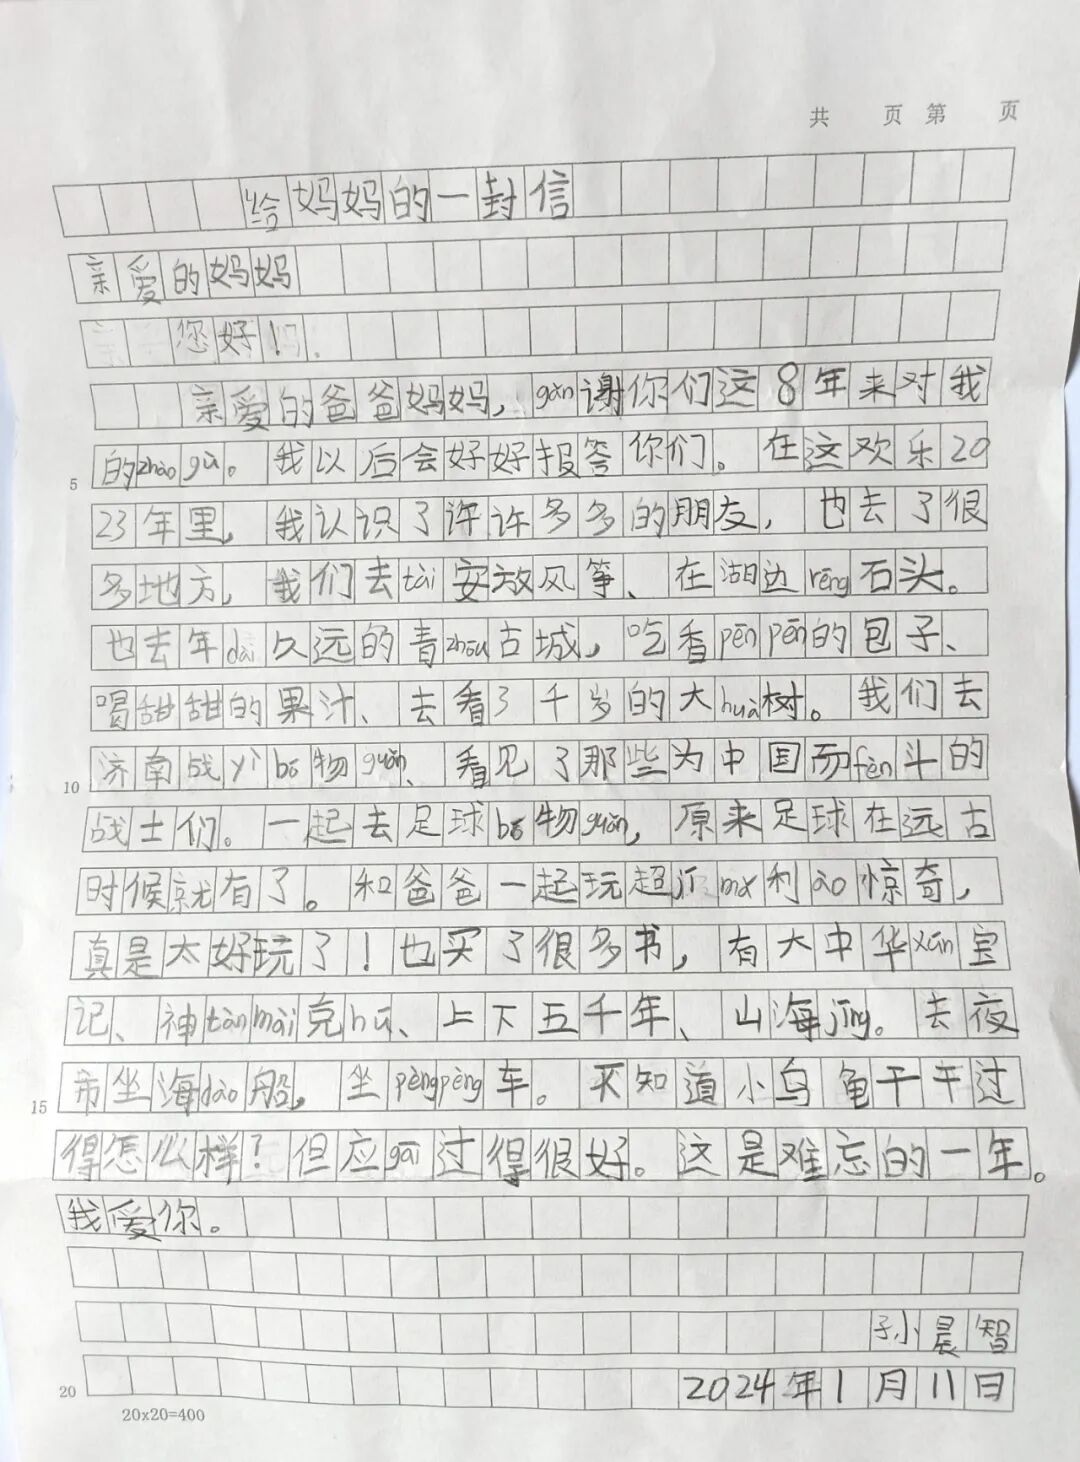 共 页 第 页
给妈妈的一封信
亲爱的妈妈
您好！
亲爱的爸爸妈妈，gǎn谢你们这8年来对我
的zhào gù。我以后会好好报答你们。在这欢乐20
23年里，我认识了许许多多的朋友，也去了很
多地方，我们去tài安放风筝、在湖边rēng石头。
也去年dài久远的青zhōu古城，吃香pēn pēn的包子、
喝甜甜的果汁、去看了千岁的大huái树。我们去
济南战yì bó物guǎn、看见了那些为中国而fèn斗的
战士们。一起去足球bó物guǎn，原来足球在远古
5
时候就有了。和爸爸一起玩超jí mǎ利ào惊奇，
10
真是太好玩了！也买了很多书，有大中华xún宝
记、神tàn mài克hú、上下五千年、山海jīng。去夜
市坐海dào船，坐pèngpèng车。不知道小乌龟干干过
15
得怎么样？但应gāi过得很好。这是难忘的一年。
我爱你。
孙小晨智
20
2024年1月11日
20x20=400